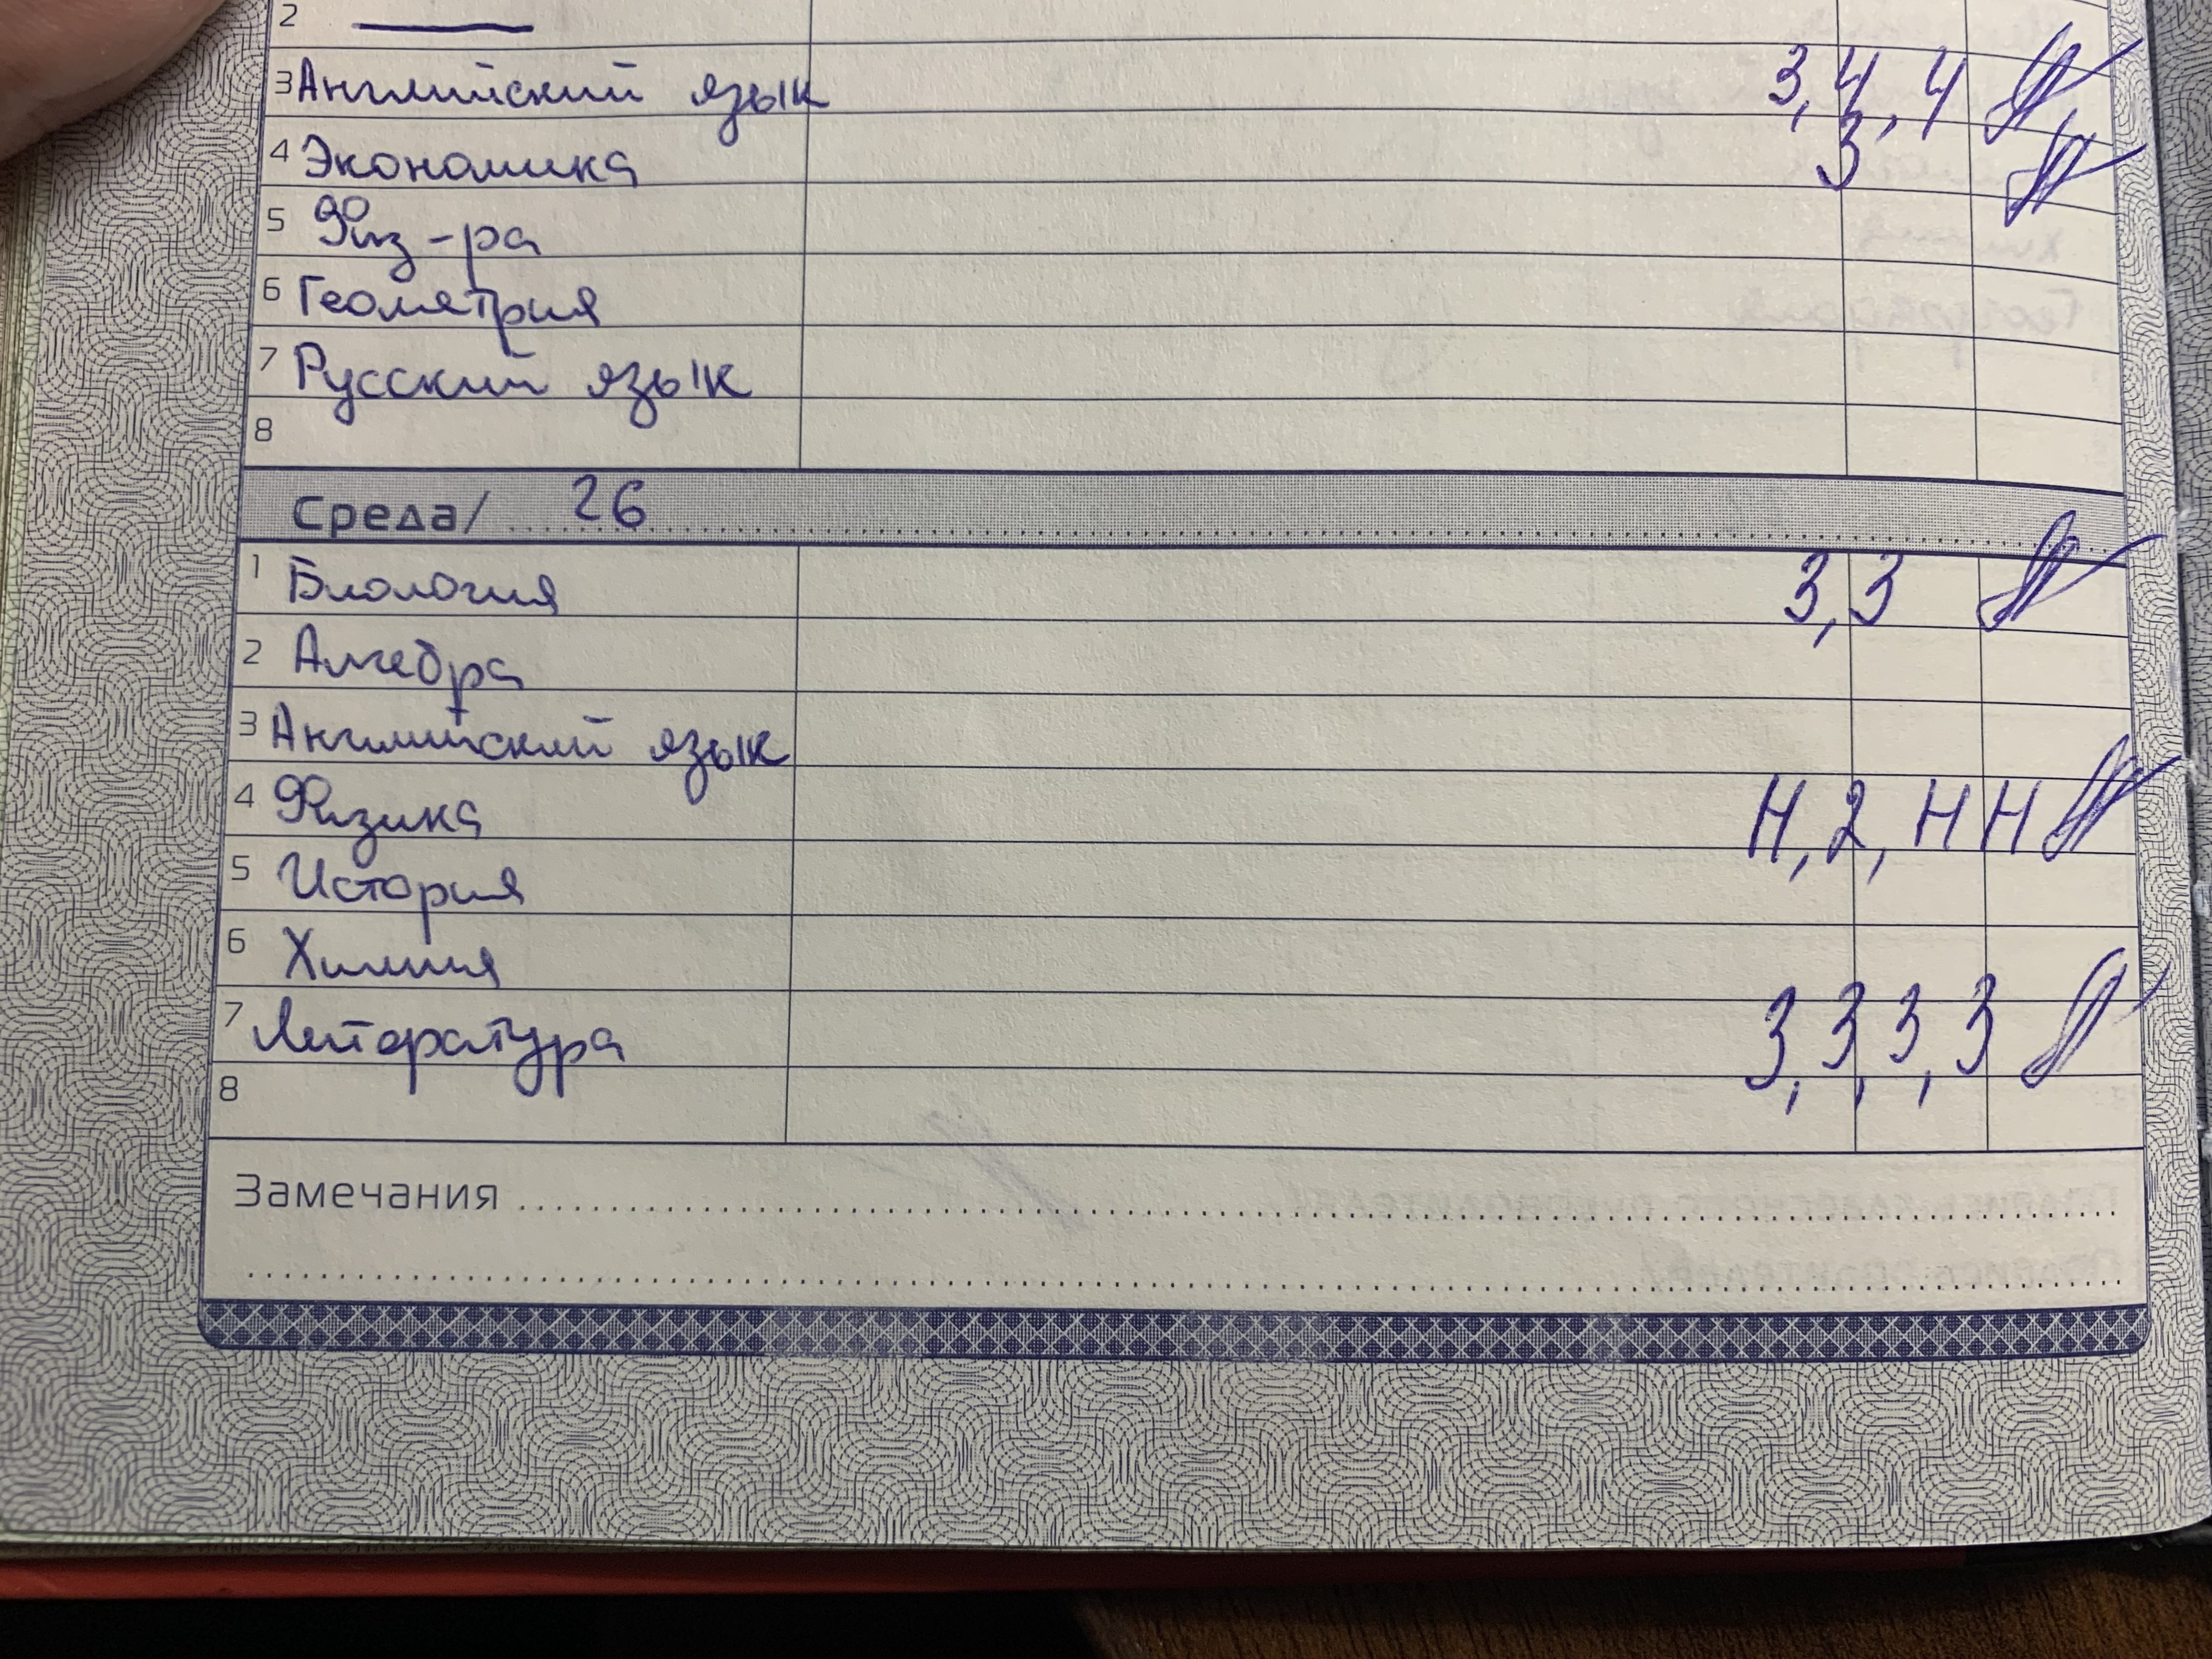 2 —
3 Английский язык 3, 4, 4
4 Экономика 3
5 Физ-ра
6 Геометрия
7 Русский язык
8
Среда/ 26
1 Биология 3, 3
2 Алгебра
3 Английский язык
4 Физика Н, 2, Н Н
5 История
6 Химия
7 Литература 3, 3, 3, 3
8
Замечания